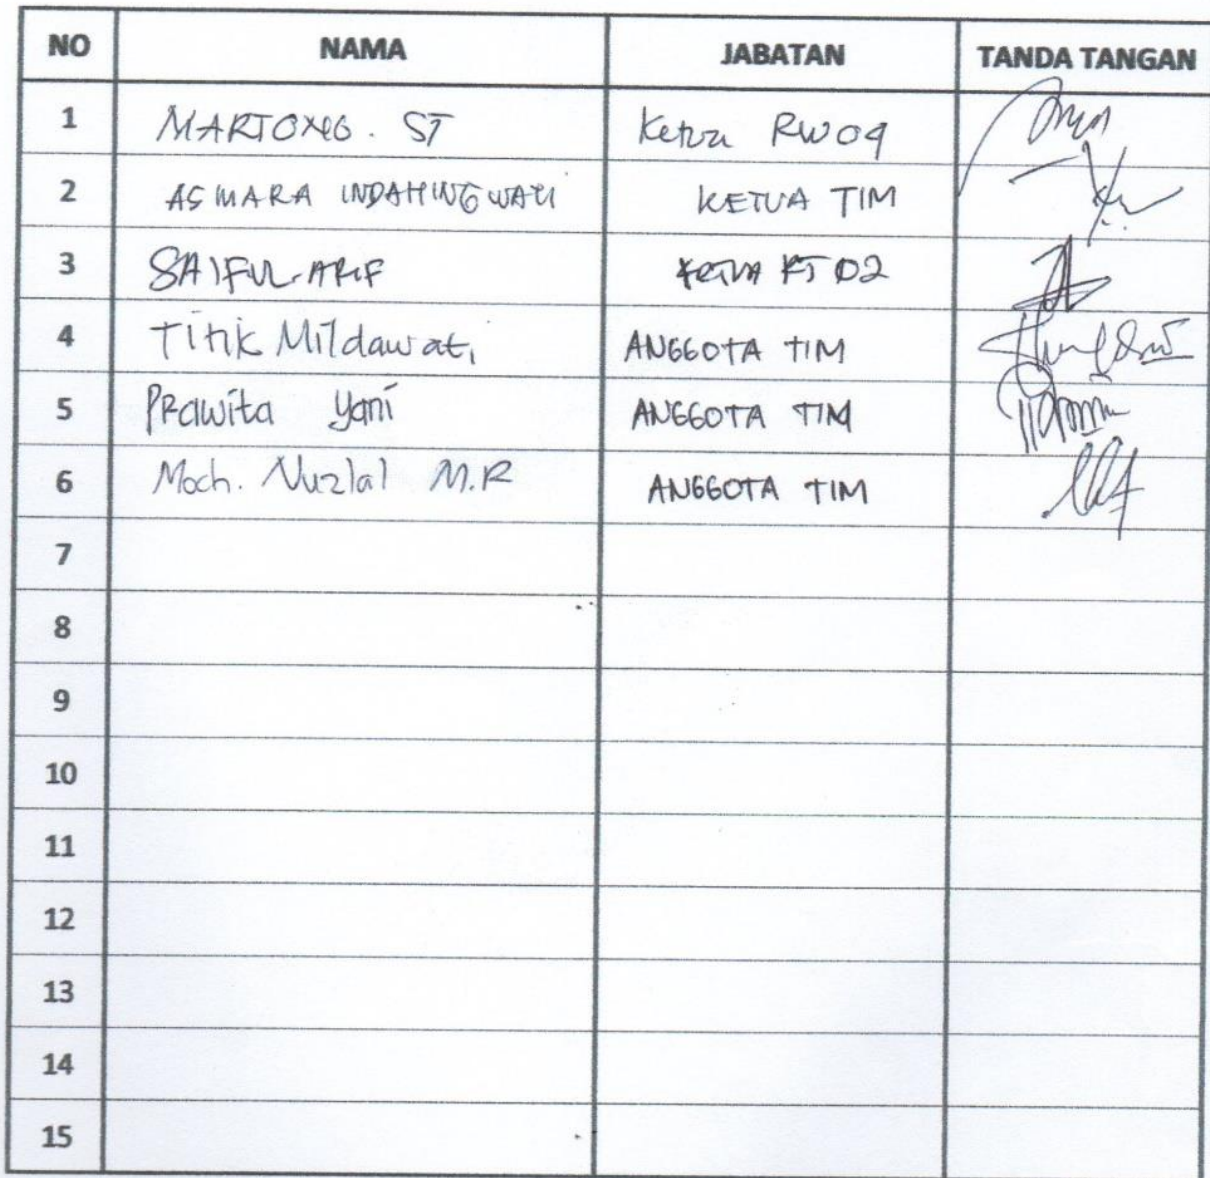 NO NAMA JABATAN TANDA TANGAN
1 MARTONO. ST Ketua RW 09
2 ASMARA INDAHINGWATI KETUA TIM
3 SAIFUL ARIF KETUA RT 02
4 Titik Mildawati ANGGOTA TIM
5 PRawita Yani ANGGOTA TIM
6 Moch. Nuzlal M.R ANGGOTA TIM
7
8
9
10
11
12
13
14
15